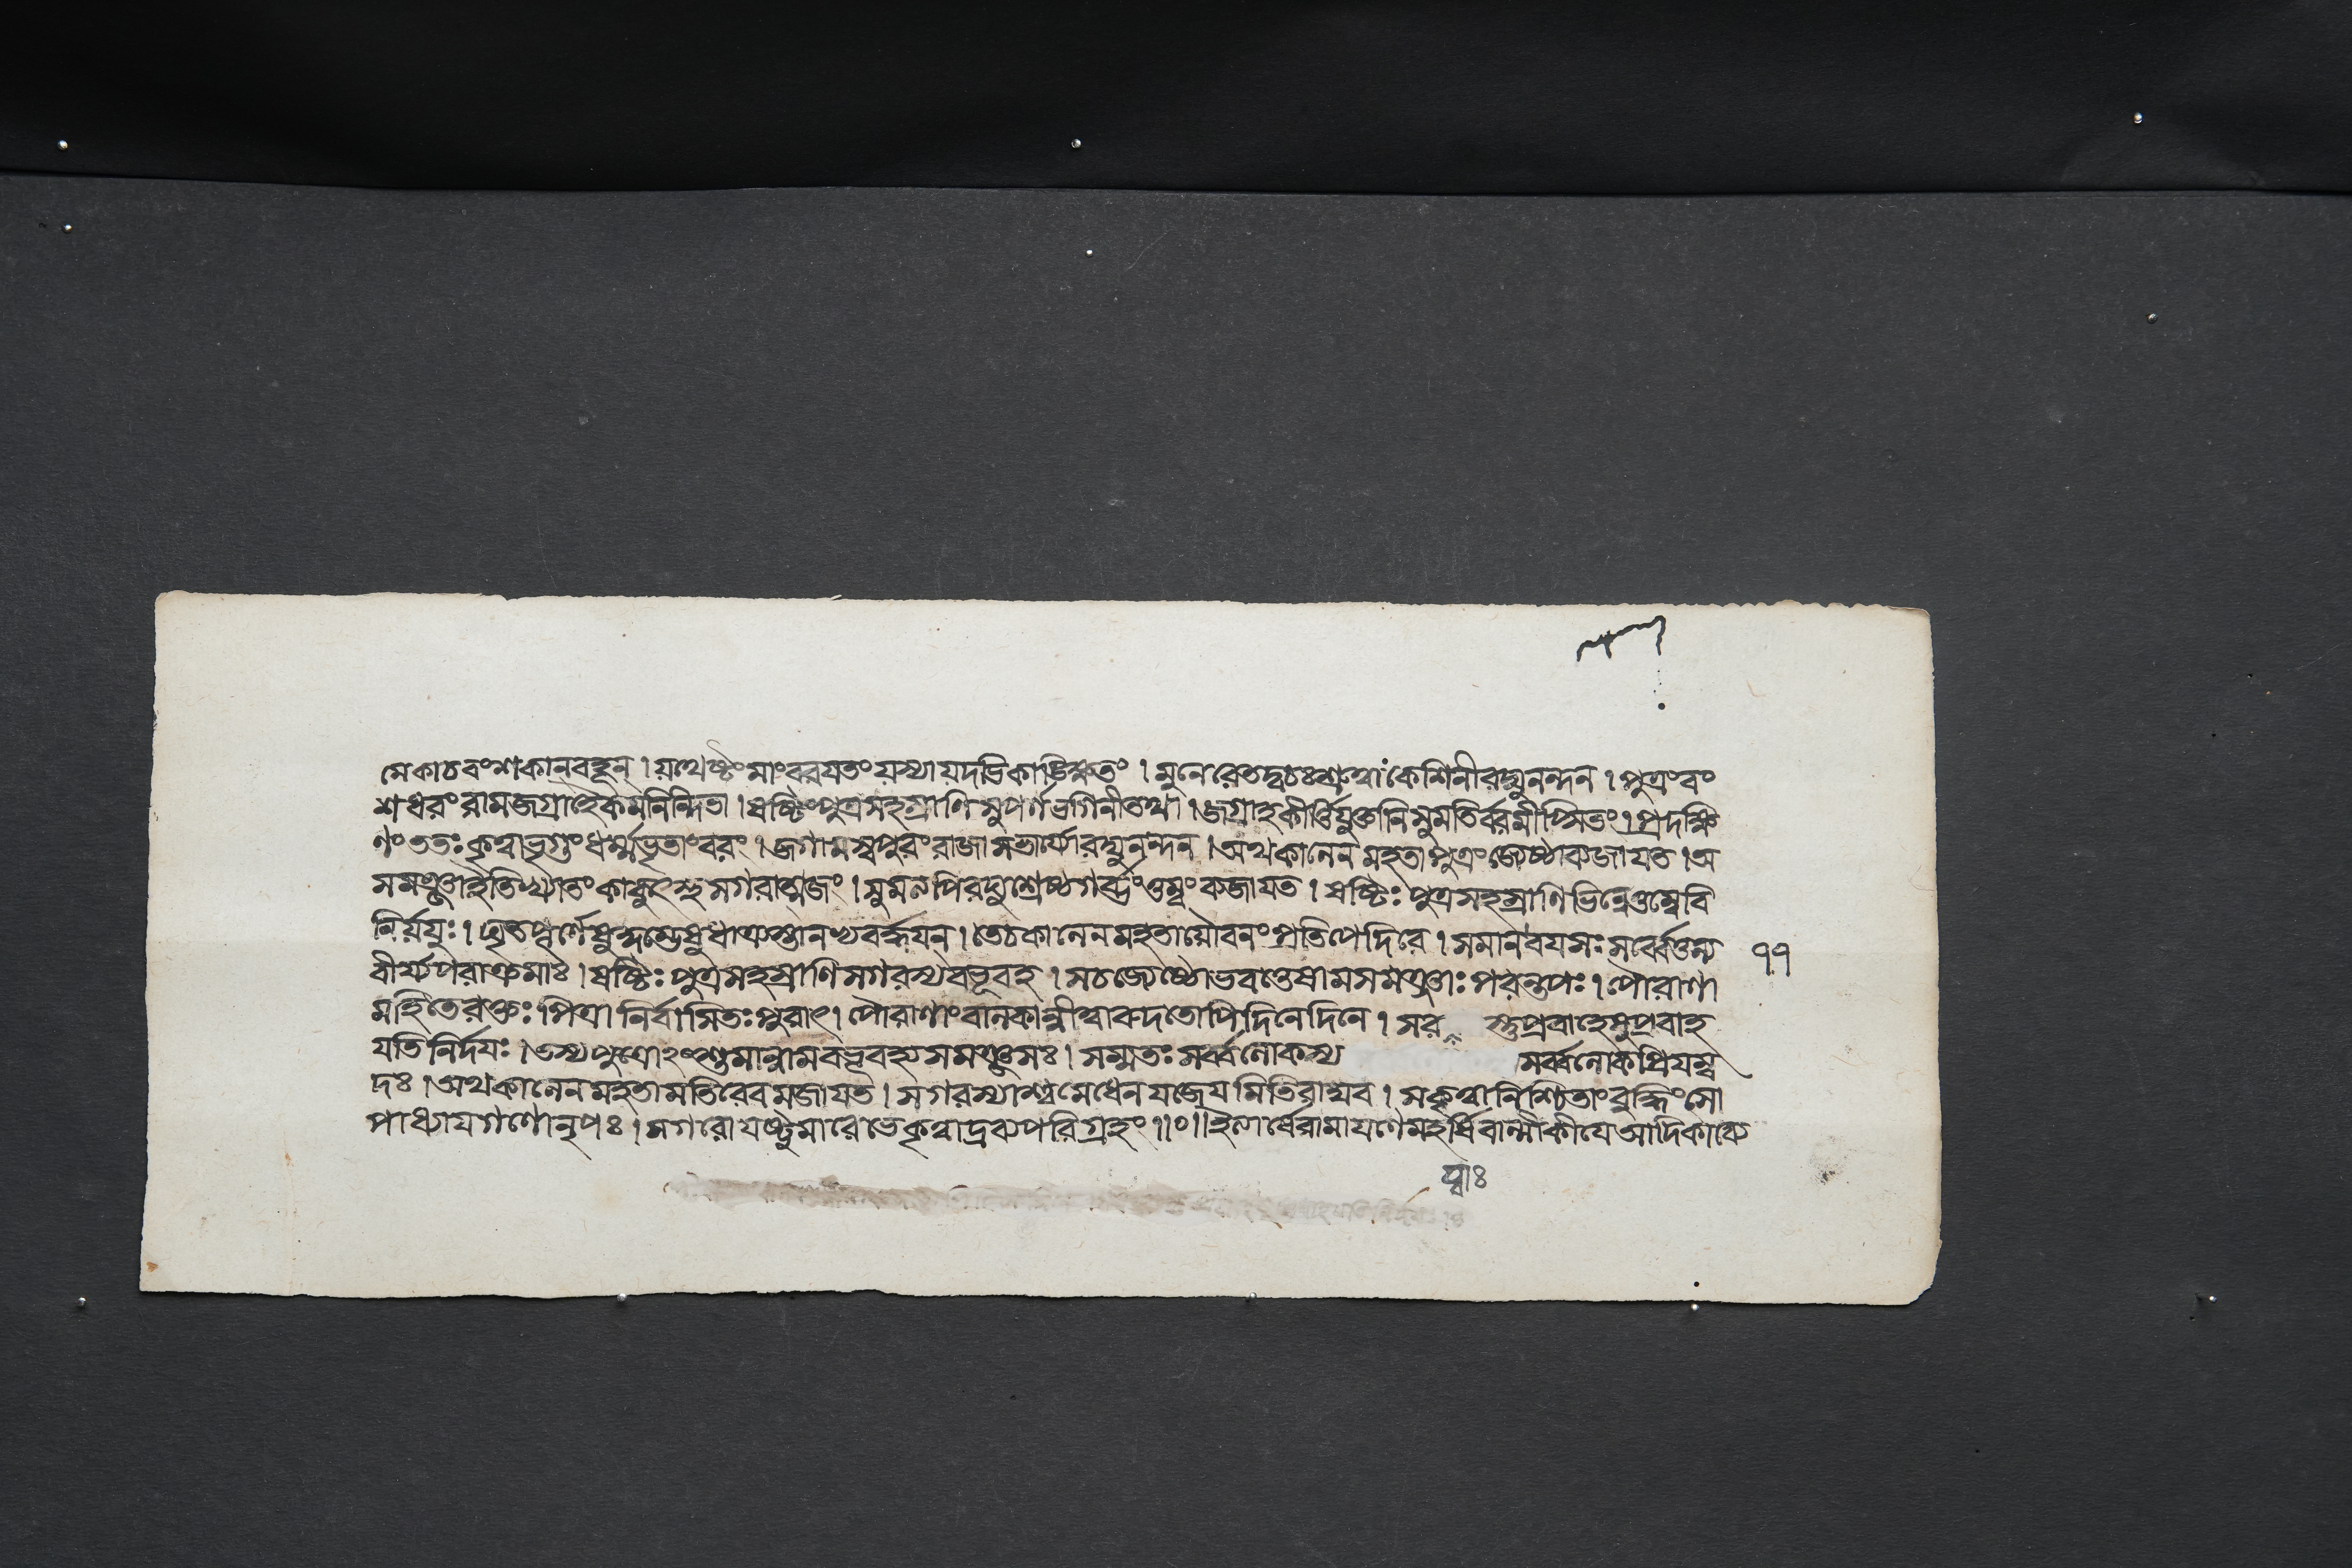 মেকাচবংশকানবহূন্ । যথেষ্টংমাংবরযতংযস্যাযদভিকাঙ্ক্ষিতং । মুনেরেতদ্বচঃশ্রুত্বা কেশিনীরঘুনন্দন । পুত্রংবং
শধরংরামজগ্রাহৈকমনিন্দিতা । ষষ্টিংপুত্রসহস্রাণিসুপর্ণভগিনীতথা । জগ্রাহকীর্ত্তিযুক্তানিসুমতির্ব্বরমীপ্সিতং । প্রদক্ষি
ণংততঃকৃত্বাভৃগুংধর্ম্মভৃতাংবরং । জগামস্বপুরংরাজাসভার্য্যোরঘুনন্দন । অথকালেনমহতাপুত্রংজ্যেষ্ঠাব্যজাযত । অ
সমঞ্জাইতিখ্যাতংকাকুৎস্থসগরাত্মজং । সুমত্যপিরঘুশ্রেষ্ঠগর্ব্ভংতুম্বংব্যজাযত । ষষ্টিঃপুত্রসহস্রাণিভিন্নেতুম্বেবি
নির্যযুঃ । ঘৃতপূর্ণেষুকুম্ভেষুধাত্র্যস্তানভ্যবর্দ্ধযন্ । তেচকালেনমহতাযৌবনংপ্রতিপেদিরে । সমানবযসঃসর্ব্বেতুল্য
বীর্য্যপরাক্রমাঃ । ষষ্টিঃপুত্রসহস্রাণিসগরস্যবভূবহ । সচজ্যেষ্ঠোভবত্তেষামসমঞ্জাঃপরন্তপঃ । পৌরাণা
মহিতেরক্তঃপিত্রানির্বাসিতঃপুরাৎ । পৌরাণাংবালকান্নীত্বারুদতোপিদিনেদিনে । সর স্তুপ্রবাহেষুপ্রবাহ
যতিনির্দযঃ । তস্যপুত্রোঽংশুমান্নামবভূবহ্যসমঞ্জসঃ । সম্মতঃসর্ব্বলোকস্য সর্ব্বলোকপ্রিযম্ব
দঃ । অথকালেনমহতামতিরেবমজাযত । সগরস্যাশ্বমেধেনযজেযমিতিরাঘব । সকৃত্বানিশ্চিতাংবুদ্ধিংসো
পাধ্যাযগণোনৃপঃ । সগরোযষ্টুমারেভেকৃত্বাদ্রব্যপরিগ্রহং ॥০॥ ইত্যার্ষেরামাযণেমহর্ষিবাল্মীকীযেআদিকাব্যে
৭৭